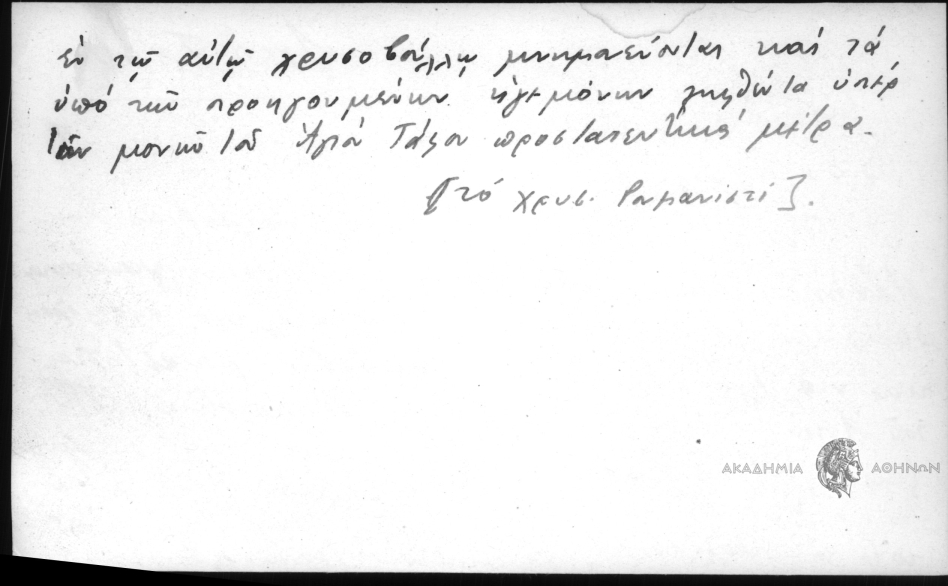 ἐν τῷ αὐτῷ χρυσοβούλλῳ μνημονεύονται καί τά
ὑπό τῶν προηγουμένων ἡγεμόνων ληφθέντα ὑπέρ
τῶν μονῶν τοῦ Ἁγίου Τάφου προστατευτικά μέτρα.
[τό χρυσ. Ρουμανιστί].
ΑΚΑΔΗΜΙΑ ΑΘΗΝΩΝ